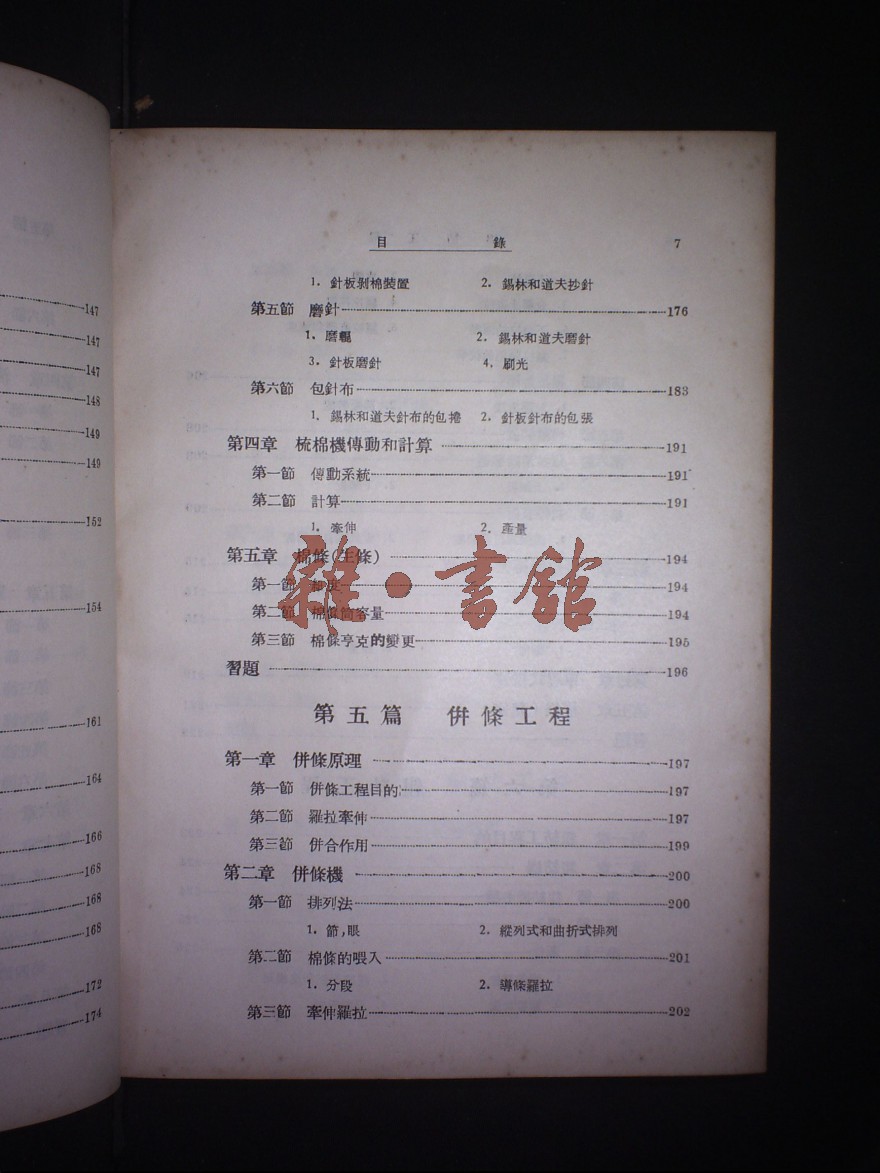 147
147
147
148
149
149
152
154
161
164
166
168
168
168
172
174
目 錄 7
1. 針板剝棉裝置 2. 錫林和道夫抄針
第五節 磨針 176
1. 磨輥 2. 錫林和道夫磨針
3. 針板磨針 4. 刷光
第六節 包針布 183
1. 錫林和道夫針布的包捲 2. 針板針布的包張
第四章 梳棉機傳動和計算 191
第一節 傳動系統 191
第二節 計算 191
1. 牽伸 2. 產量
第五章 棉條(生條) 194
第一節 194
第二節 棉條筒容量 194
第三節 棉條亨克的變更 195
習題 196
第五篇 併條工程
第一章 併條原理 197
第一節 併條工程目的 197
第二節 羅拉牽伸 197
第三節 併合作用 199
第二章 併條機 200
第一節 排列法 200
1. 節,眼 2. 縱列式和曲折式排列
第二節 棉條的喂入 201
1. 分段 2. 導條羅拉
第三節 牽伸羅拉 202
雜·書館